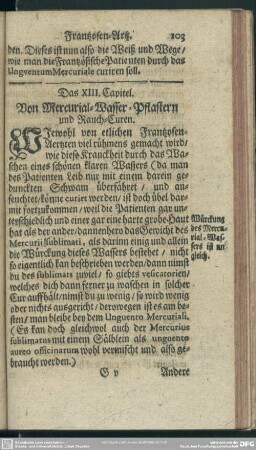 Frantzosen-Artz. 103
den. Dieses ist nun also die Weiß und Wege /
wie man die Frantzösische Patienten durch das
Unguentum Mercuriale curiren soll.
Das XIII. Capitel.
Von Mercurial-Wasser-Pflastern
und Rauch-Curen.
Wiewohl von etlichen Frantzosen-
Aertzten viel rühmens gemacht wird /
wie diese Kranckheit durch das Wa-
schen eines schönen klaren Wassers (da man
des Patienten Leib nur mit einem darein ge-
dunckten Schwam überfähret / und an-
feuchtet / könne curiert werden / ist doch übel dar-
mit fortzukommen / weil die Patienten gar un-
terschiedlich und einer gar eine harte grobe Haut
hat als der ander / dannenhero das Gewicht des
Mercurii sublimati, als darinn einig und allein
die Würckung dieses Wassers bestehet / nicht
so eigentlich kan beschrieben werden / dann nimst
du des sublimats zuviel / so giebts vesicatorien /
welches dich dann ferner zu waschen in solcher
Cur auffhält / nimst du zu wenig / so wird wenig
oder nichts ausgericht / derowegen ist es am be-
sten / man bleibe bey dem Unguento Mercuriali.
(Es kan doch gleichwol auch der Mercurius
sublimatus mit einem Sälblein als unguento
aureo officinarum wohl vermischt und also ge-
braucht werden.)
Würckung
des Mercu-
rial-Was-
sers ist un-
gleich.
G v Andere